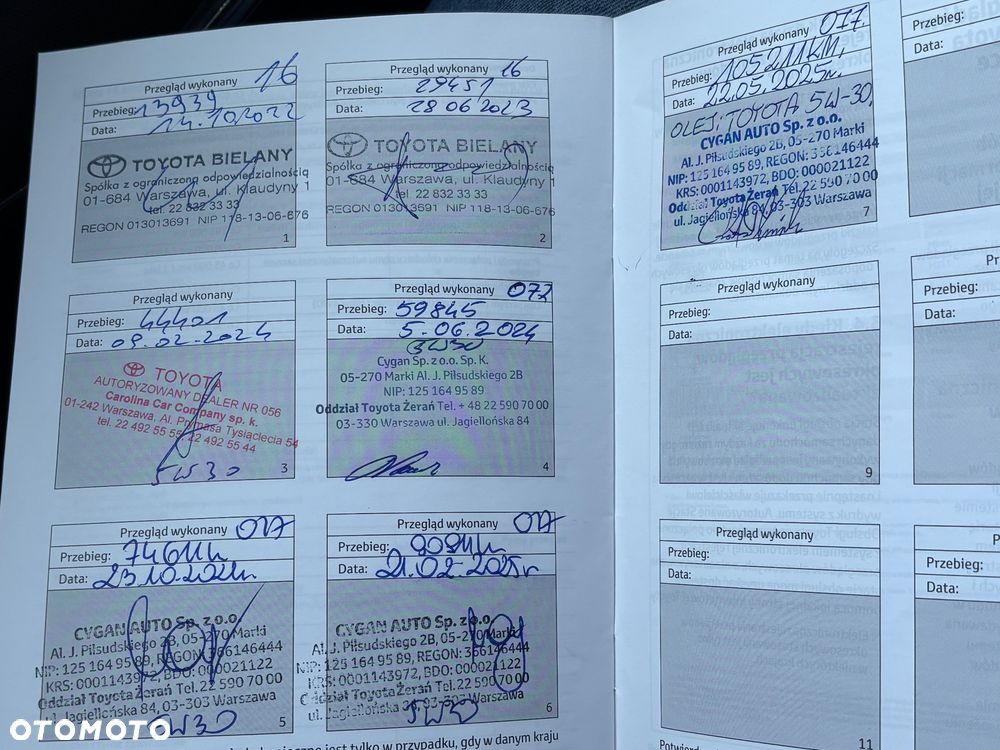 Przegląd wykonany 16
Przebieg: 13939
Data: 14.10.2022
TOYOTA BIELANY
Spółka z ograniczoną odpowiedzialnością
01-684 Warszawa, ul. Klaudyny 1
tel. 22 832 33 33
REGON 013013691 NIP 118-13-06-676
1
Przegląd wykonany 16
Przebieg: 29451
Data: 28 06 2023
TOYOTA BIELANY
Spółka z ograniczoną odpowiedzialnością
01-684 Warszawa, ul. Klaudyny 1
tel. 22 832 33 33
REGON 013013691 NIP 118-13-06-676
2
Przegląd wykonany
Przebieg: 44401
Data: 09.02.2024
TOYOTA
AUTORYZOWANY DEALER NR 056
Carolina Car Company sp. k.
01-242 Warszawa, Al. Prymasa Tysiąclecia 54
tel. 22 492 55 55, 22 492 55 44
5W30
3
Przegląd wykonany 072
Przebieg: 59845
Data: 5.06.2024
5W30
Cygan Sp. z o.o. Sp. K.
05-270 Marki Al. J. Piłsudskiego 2B
NIP: 125 164 95 89
Oddział Toyota Żerań Tel. + 48 22 590 70 00
03-330 Warszawa ul. Jagiellońska 84
4
Przegląd wykonany 017
Przebieg: 74611km
Data: 23.10.2024r.
CYGAN AUTO Sp. z o.o.
Al. J. Piłsudskiego 2B, 05-270 Marki
NIP: 125 164 95 89, REGON: 366146444
KRS: 0001143972, BDO: 000021122
Oddział Toyota Żerań Tel. 22 590 70 00
ul. Jagiellońska 84, 03-303 Warszawa
5W30
5
Przegląd wykonany 017
Przebieg:
Data: 21.02.2025r
CYGAN AUTO Sp. z o.o.
Al. J. Piłsudskiego 2B, 05-270 Marki
NIP: 125 164 95 89, REGON: 366146444
KRS: 0001143972, BDO: 000021122
Oddział Toyota Żerań Tel. 22 590 70 00
ul. Jagiellońska 84, 03-303 Warszawa
5W30
6
jest tylko w przypadku, gdy w danym kraju
Przegląd wykonany 017.
Przebieg: 105211KM.
Data: 22.05.2025r.
OLEJ: TOYOTA 5W-30,
CYGAN AUTO Sp. z o.o.
Al. J. Piłsudskiego 2B, 05-270 Marki
NIP: 125 164 95 89, REGON: 366146444
KRS: 0001143972, BDO: 000021122
Oddział Toyota Żerań Tel. 22 590 70 00
ul. Jagiellońska 84, 03-303 Warszawa
7
Przebieg:
Data:
Przegląd wykonany
Przebieg:
Data:
9
Przebieg:
Data:
Przegląd wykonany
Przebieg:
Data:
11
Przebieg:
Data:
OTOMOTO